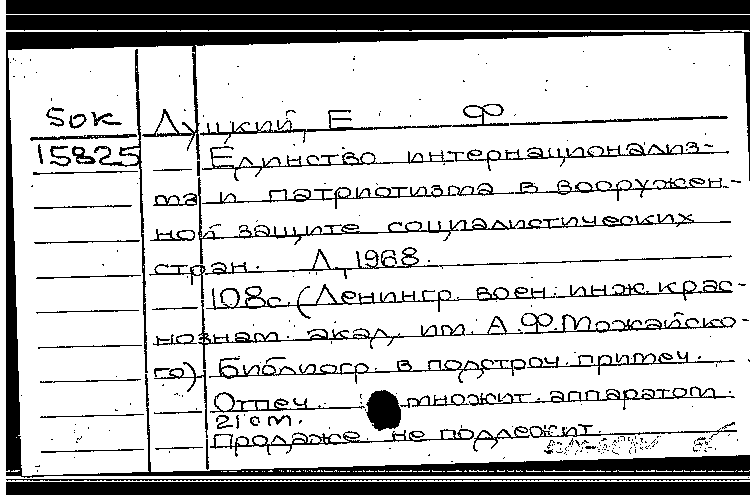 50к
Луцкий, Е Ф
15825
Единство интернационализ-
ма и патриотизма в вооружен-
ной защите социалистических
стран. Л, 1968.
108с. (Ленингр. воен. инж. крас-
нознам. акад. им. А.Ф. Можайско-
го) Библиогр. в подстроч. примеч.
Отпеч. множит. аппаратом.
21 cm.
Продаже не подлежит.